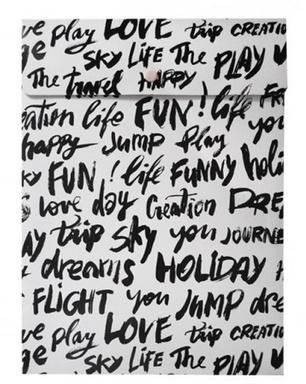 ve play LOVE trip CREATIO
ge SKY LIFE The PLAY
The travel HAPPY
eation life FUN! life FR
happy JUMP Play you
KY FUN! life FUNNY holi
love day Creation DRE
AY trip SKY you JOURNE
dreams HOLIDAY
FLIGHT you JUMP dre
ve play LOVE trip CREATIO
ge SKY LIFE The PLAY